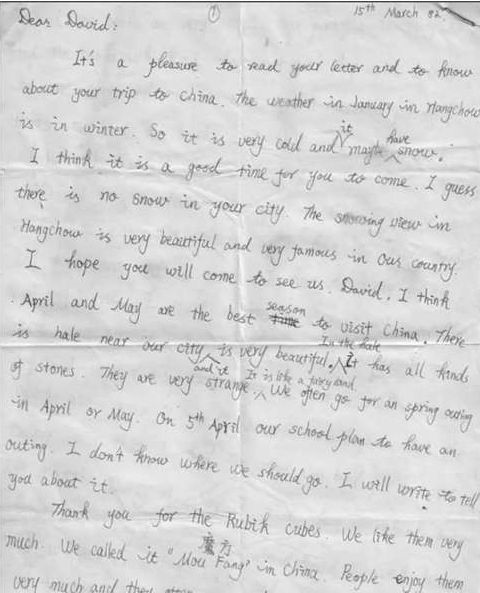 15th March 82.
①
Dear David:
It's a pleasure to read your letter and to know
about your trip to China. The weather in January in Hangchow
is in winter. So it is very cold and it maybe have snow.
I think it is a good time for you to come. I guess
there is no snow in your city. The snowing view in
Hangchow is very beautiful and very famous in our country.
I hope you will come to see us. David, I think
April and May are the best season to visit China. There
is hale near our city and it is very beautiful. In the hale it has all kinds
of stones. They are very strange. It is like a fairy land. We often go for an spring outing
in April or May. On 5th April our school plan to have an
outing. I don't know where we should go. I will write to tell
you about it.
Thank you for the Rubik cubes. We like them very
much. We called it "Mou Fang" 魔方 in China. People enjoy them
very much and they